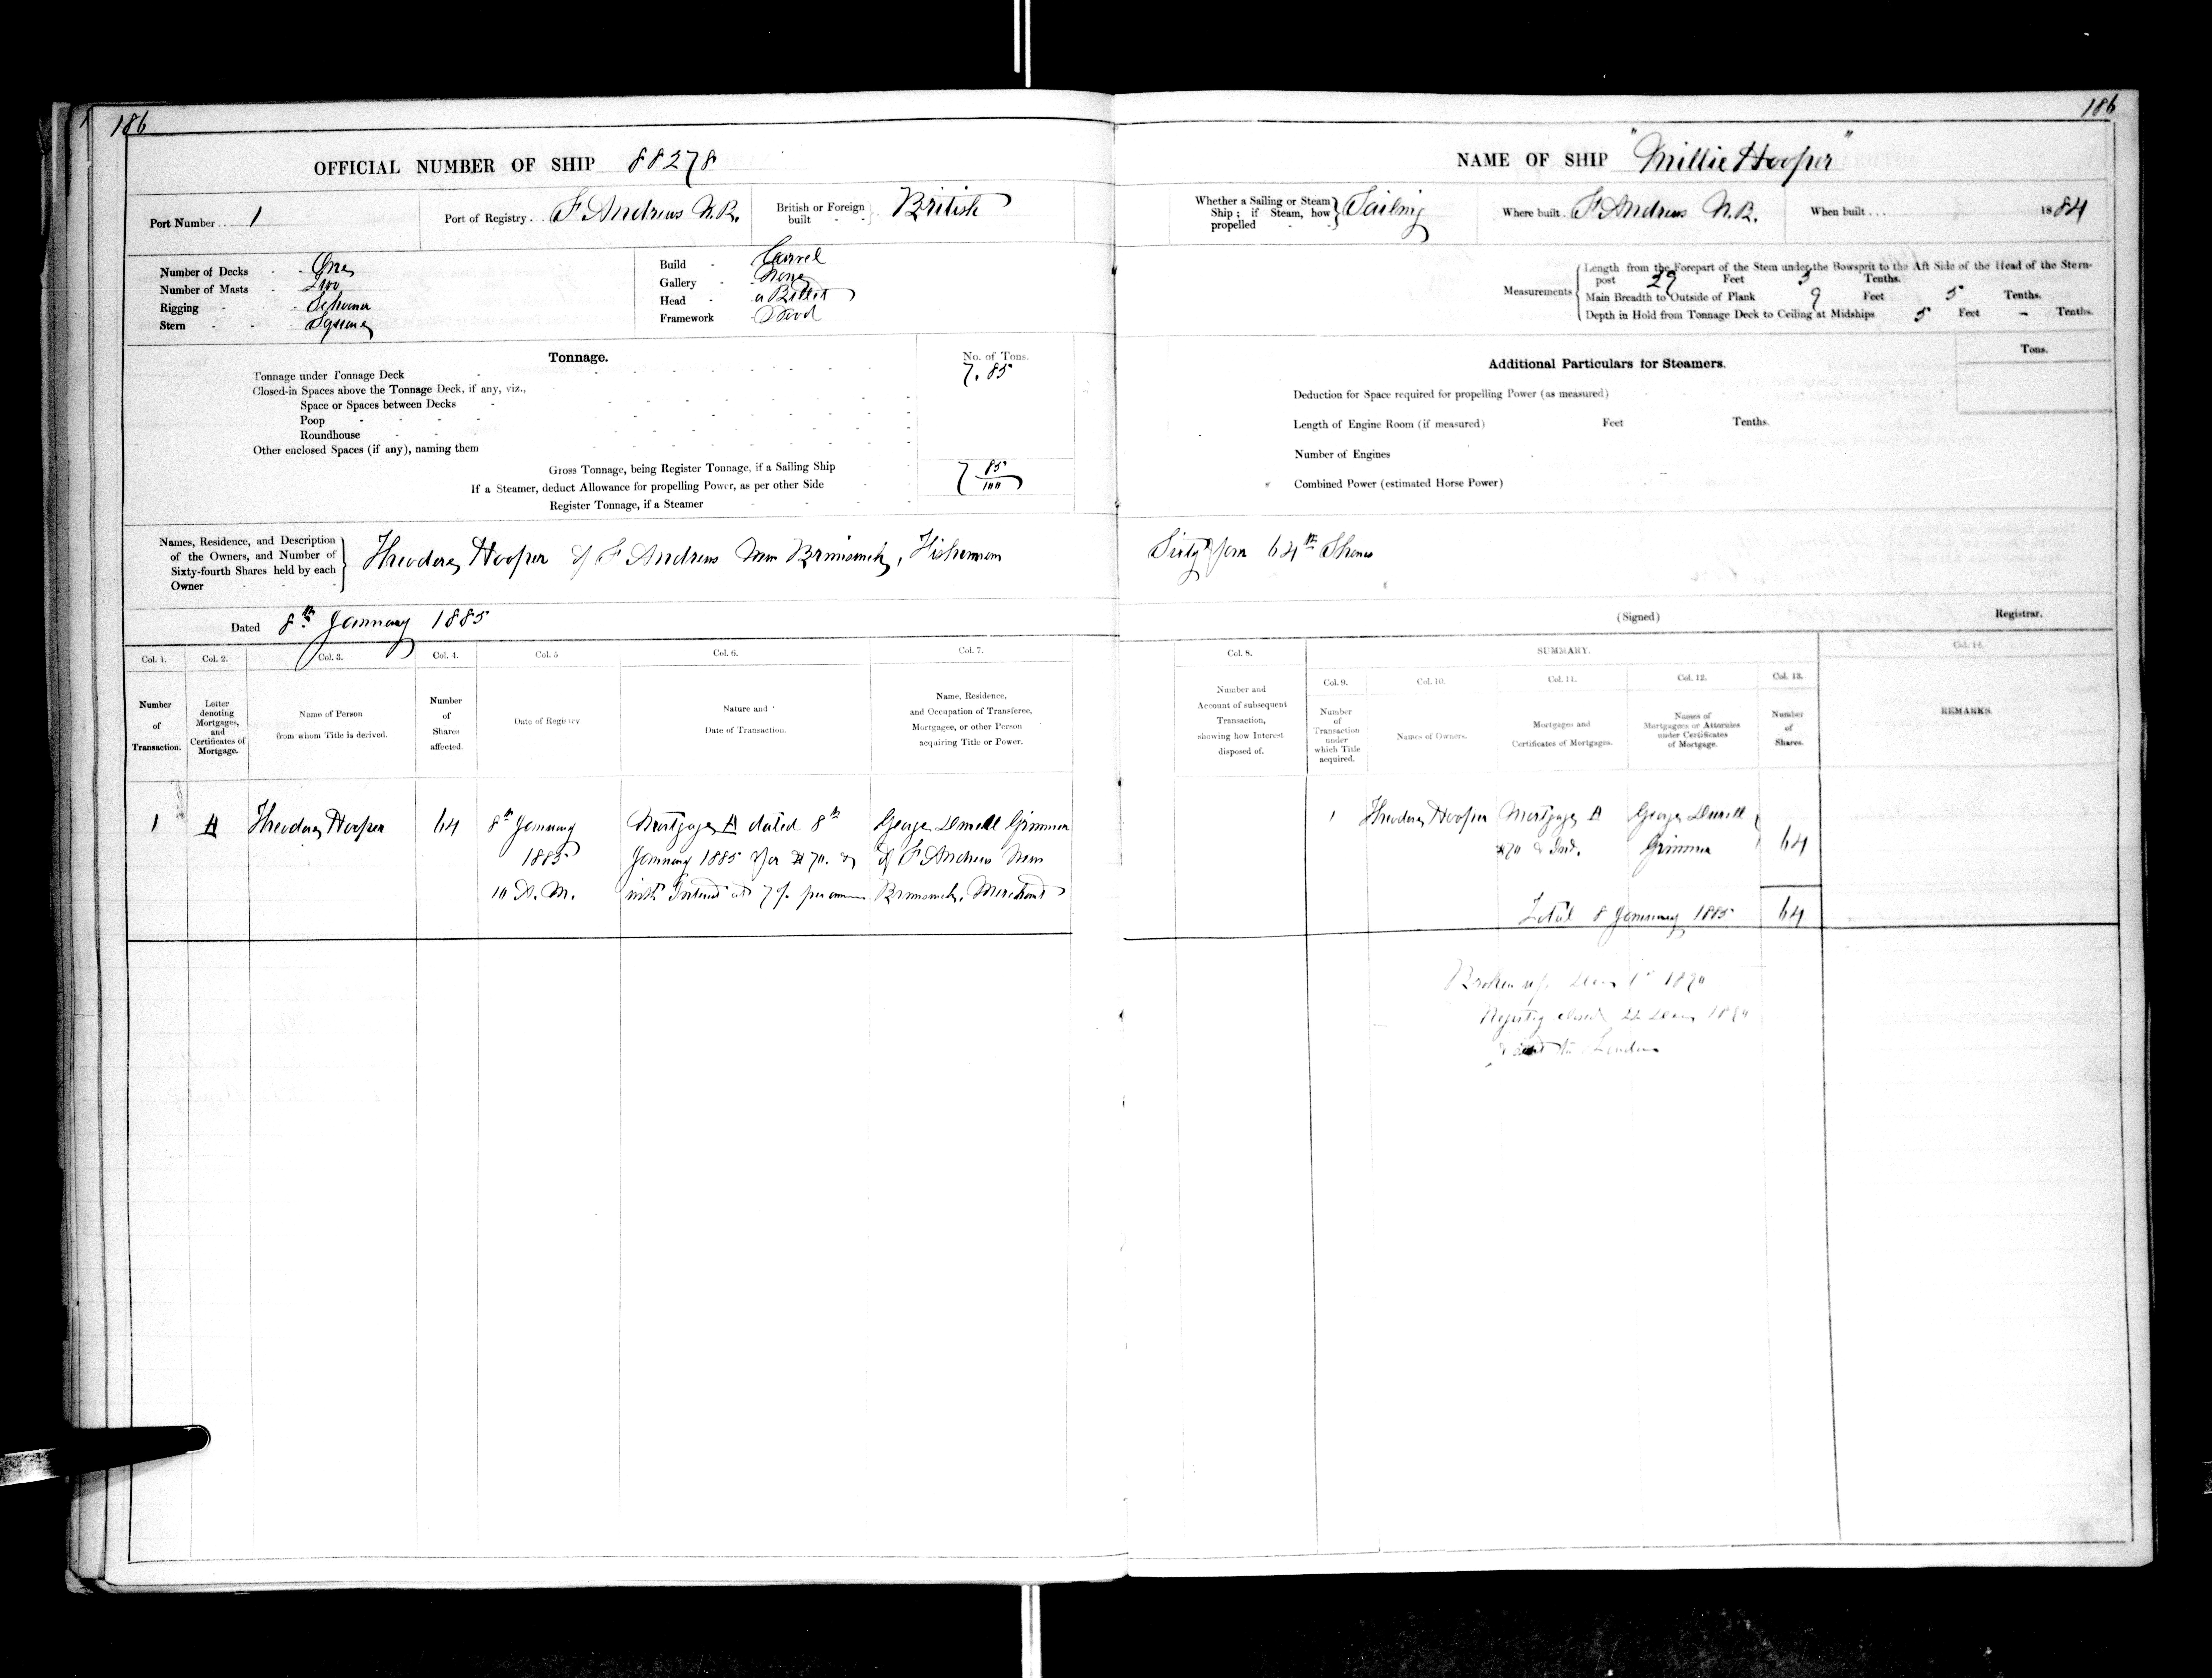 186
OFFICIAL NUMBER OF SHIP 88278
Port Number . . 1
Port of Registry . . . St Andrews N.B.
British or Foreign built - - British
Number of Decks - - One
Number of Masts - Two
Rigging - - Schooner
Stern - - - Square
Build - Carvel
Gallery - None
Head - a Billet
Framework - Wood
Tonnage.
No. of Tons.
Tonnage under Tonnage Deck - 7.85
Closed-in Spaces above the Tonnage Deck, if any, viz.,
Space or Spaces between Decks -
Poop -
Roundhouse -
Other enclosed Spaces (if any), naming them
Gross Tonnage, being Register Tonnage, if a Sailing Ship 7 85/100
If a Steamer, deduct Allowance for propelling Power, as per other Side
Register Tonnage, if a Steamer
Names, Residence, and Description
of the Owners, and Number of
Sixty-fourth Shares held by each
Owner
Theodore Hooper of St Andrews New Brunswick, Fisherman
Dated 8th January 1885
Col. 1. Col. 2. Col. 3. Col. 4. Col. 5 Col. 6. Col. 7.
Number of Transaction.
Letter denoting Mortgages, and Certificates of Mortgage.
Name of Person from whom Title is derived.
Number of Shares affected.
Date of Registry
Nature and Date of Transaction.
Name, Residence, and Occupation of Transferee, Mortgagee, or other Person acquiring Title or Power.
1 A Theodore Hooper 64 8th January Mortgage A dated 8th George Durell Grimmer
1885 January 1885 for $70. & of St Andrews New
10 A.M. with Interest at 7 % per annum Brunswick, Merchant
186
NAME OF SHIP "Millie Hooper"
Whether a Sailing or Steam Ship; if Steam, how propelled - - Sailing
Where built . St Andrews N.B.
When built . . . 1884
Measurements
Length from the Forepart of the Stem under the Bowsprit to the Aft Side of the Head of the Stern-
post 29 Feet 3 Tenths.
Main Breadth to Outside of Plank 9 Feet 5 Tenths.
Depth in Hold from Tonnage Deck to Ceiling at Midships 5 Feet – Tenths.
Additional Particulars for Steamers.
Tons.
Deduction for Space required for propelling Power (as measured)
Length of Engine Room (if measured) Feet Tenths.
Number of Engines
Combined Power (estimated Horse Power)
Sixty four 64th Shares
(Signed) Registrar.
Col. 8. SUMMARY. Col. 14.
Col. 9. Col. 10. Col. 11. Col. 12. Col. 13.
Number and Account of subsequent Transaction, showing how Interest disposed of.
Number of Transaction under which Title acquired.
Names of Owners.
Mortgages and Certificates of Mortgages.
Names of Mortgagees or Attornies under Certificates of Mortgage.
Number of Shares.
REMARKS.
1 Theodore Hooper Mortgage A George Durell
$70 & Int. Grimmer 64
Total 8 January 1885 64
Broken up 1st 1890
Registry closed 22 1890
& sent to London